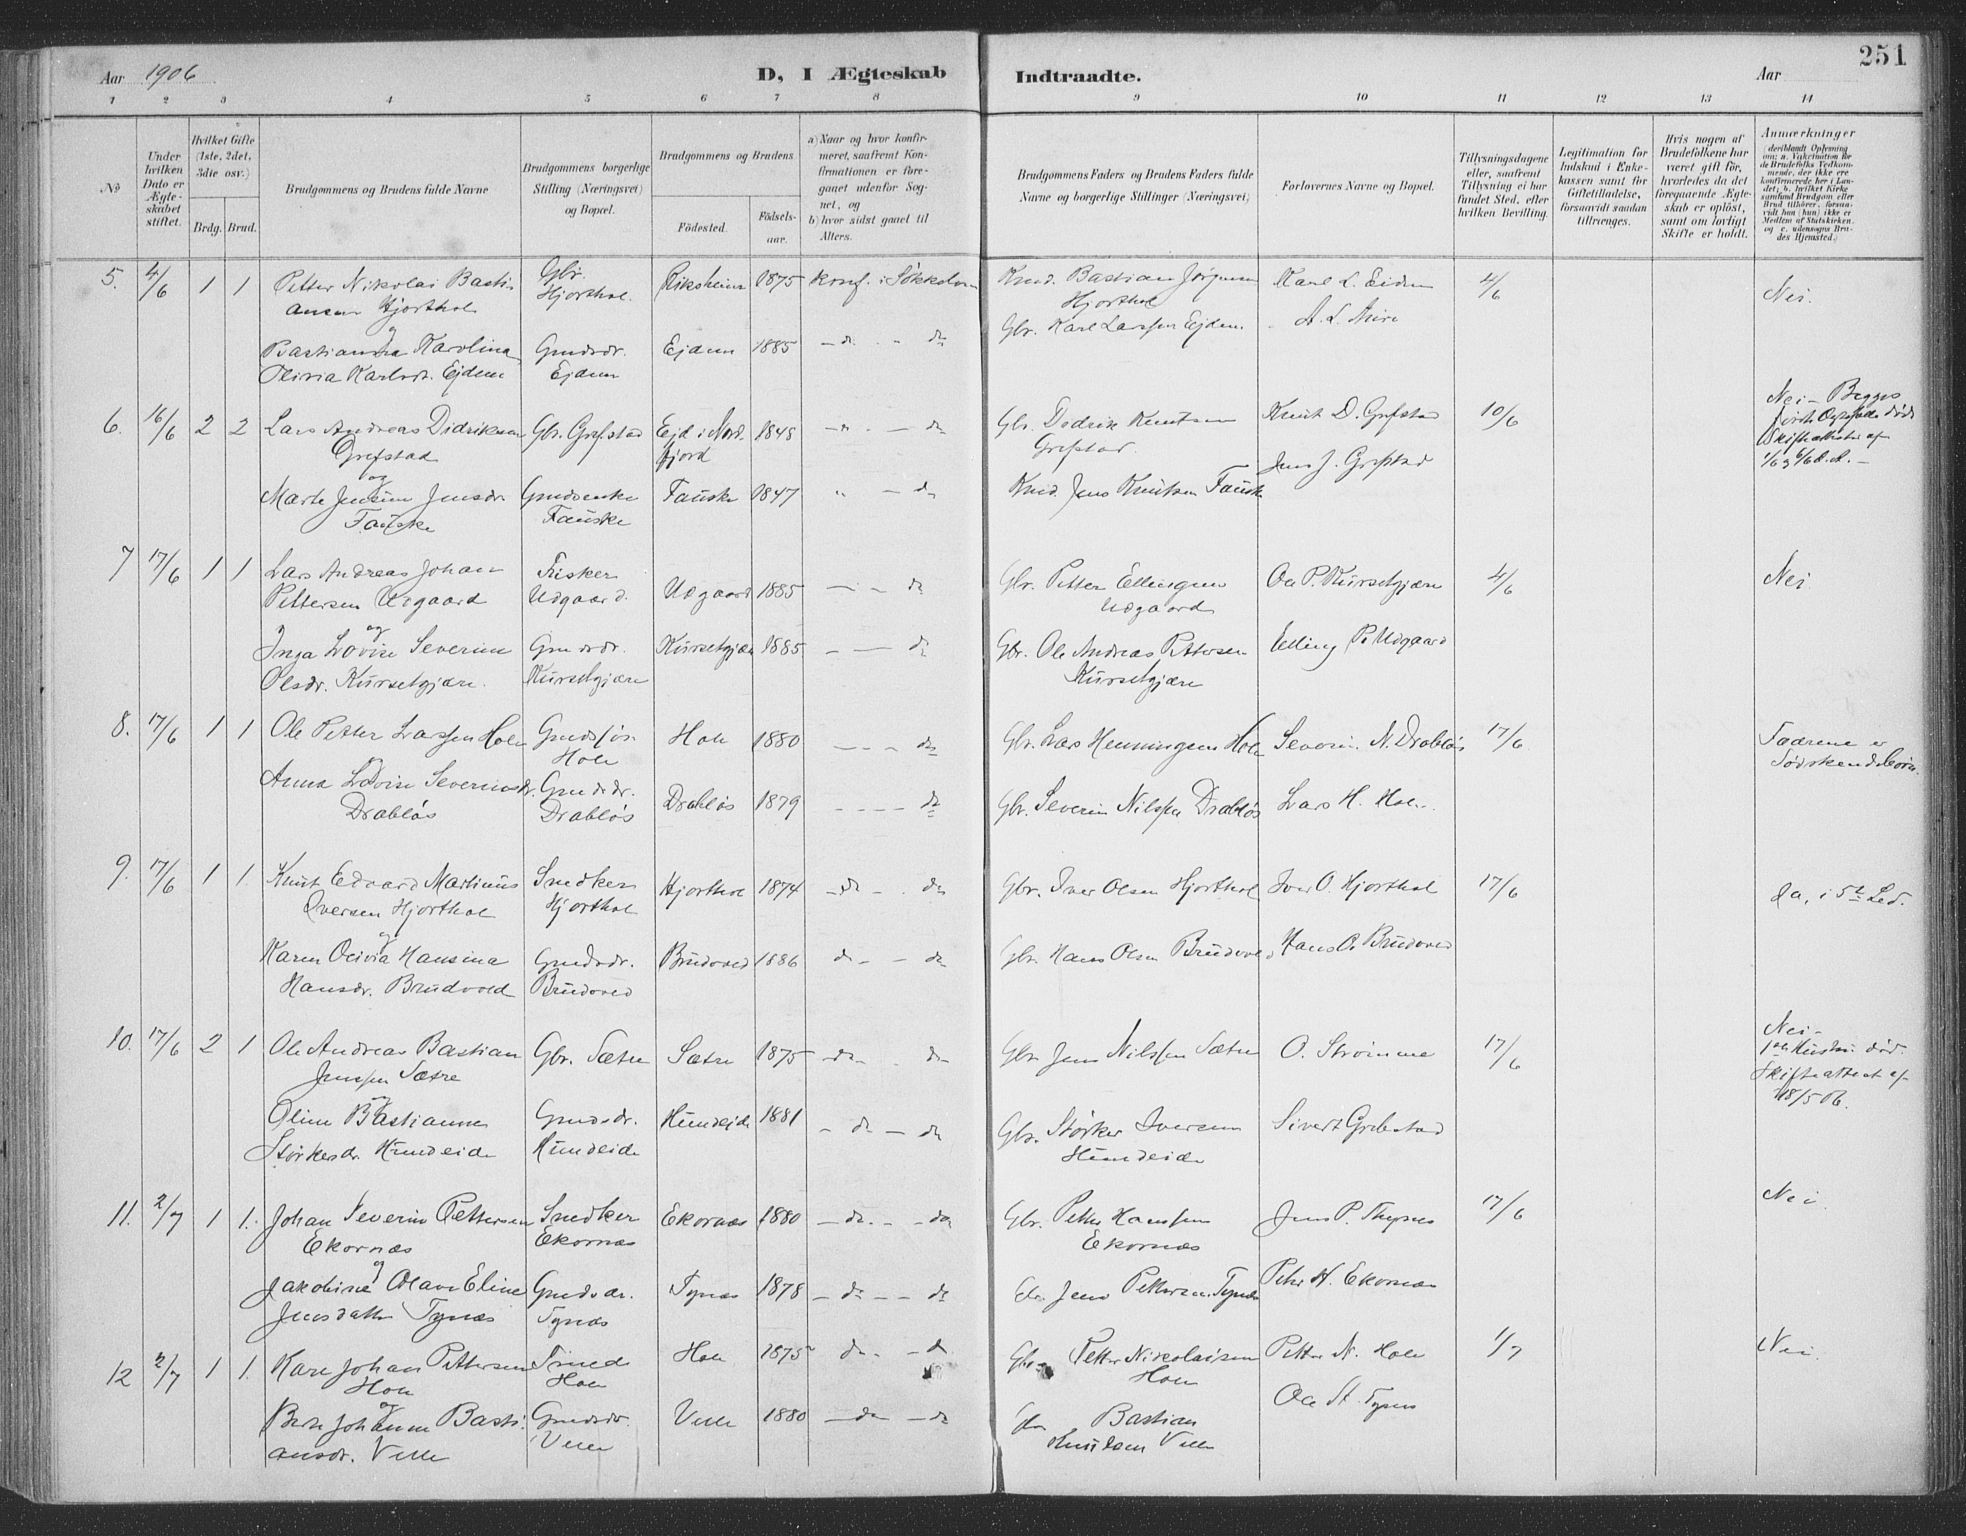 Aar 1906 D, I Ægteskab Indtraadte. Aar 251
1 2 3 4 5 6 7 8 9 10 11 12 13 14
No
Under hvilken Dato er Ægteskabet stiftet.
Hvilket Gifte (1ste, 2det, 3die osv.)
Brdg. Brud.
Brudgommens og Brudens fulde Navne
Brudgommens borgerlige Stilling (Næringsvei) og Bopæl.
Brudgommens og Brudens
Fødested. Fødselsaar.
a) Naar og hvor konfirmeret, saafremt Konfirmationen er foregaaet udenfor Sognet, og
b) hvor sidst gaaet til Alters.
Brudgommens Faders og Brudens Faders fulde Navne og borgerlige Stillinger (Næringsvei)
Forlovernes Navne og Bopæl.
Tillysningsdagene eller, saafremt Tillysning ei har fundet Sted, efter hvilken Bevilling.
Legitimation for Indskud i Enkekassen samt for Giftetilladelse, forsaavidt saadan tiltrænges.
Hvis nogen af Brudefolkene har været gift før, hvorledes da det foregaaende Ægteskab er opløst, samt om lovligt Skifte er holdt.
Anmærkninger (deriblandt Oplysning om: a. Vakcination for de Brudefolks Vedkommende, der ikke ere konfirmerede her i Landet; b. hvilket Kirkesamfund Brudgom eller Brud tilhører, forsaavidt han (hun) ikke er Medlem af Statskirken, og c. udensogns Brudes Hjemsted.)
5. 4/6 1 1 Petter Nikolai Basti- Gbr. Riksheim 1875 konf. i Søkkelven Knud Bastian Jørgensen Karl L. Eidem 4/6 Nei.
ansen Hjorthol Hjorthol. Hjorthol A. L. Aure
og Gbr. Karl Larssen Ejdem.
Bastianna Karolina Gmdsdr. Ejdem 1885 — do — do
Olivia Karlsdr. Ejdem Ejdem
6. 16/6 2 2 Lars Andreas Didriksen Gbr. Grefstad Ejd i Nord- 1848 — " — do Gbr. Didrik Knutsen Knut D. Grefstad 10/6 Nei – Begges
Grefstad fjord Grefstad. Jens J. Grefstad
og
Skifteattester af
Marte Jensdr Gmdsenke Fauske 1847 " — do Jens Knutsen Fauske
Fauske Fauske
7 17/6 1 1 Lars Andreas Johan Fisker Udgaard 1885 — — do Gbr. Petter Ellingsen Ole P. Kursetgjære 4/6 Nei
Pettersen Udgaard Udgaard. Udgaard
og
Inga Lovise Severine Gmdsdr. Kursetgjære 1885 — — do Gbr. Ole Andreas Pettersen Elling P. Udgaard
Olsdr. Kursetgjære. Kursetgjære Kursetgjære
8. 17/6 1 1 Ole Petter Larssen Hole Gmdssøn Hole 1880 — — do Gbr. Lars Henningsen Hole Severin N. Drabløs 17/6 Fædrene er
Hole Sødskendebørn.
Anna Lovise Severinsdr. Gmdsdr. Drabløs 1879 — — — do Gbr. Severin Nilssen Drabløs Lars H. Hole.
Drabløs Drabløs
9. 17/6 1 1 Knut Edvard Martinus Snedker Hjorthol 1874 — do — do Gbr. Iver Olsen Hjorthol Iver O. Hjorthol 17/6 Ja, i 5te Led.
Iversen Hjorthol Hjorthol
og
Karen Olivia Hansina Gmdsdr. Brudvold 1886 do — — do Gbr. Hans Olsen Brudvold Hans O. Brudvold
Hansdr. Brudvold Brudvold
10. 17/6 2 1 Ole Andreas Bastian Gbr. Sætre Sætre 1875 — do — do Gbr. Jens Nilssen Sætre O. Strømme 17/6 Nei –
Jenssen Sætre 1ste Hustru død.
og Skifteattest af
18/5 06.
Oline Bastianne Gmdsdr. Hundeide 1881 — do — do Gbr. Størker Iversen Sivert Grebstad
Størkersdr. Hundeide Hundeide Hundeide
11. 2/7 1 1. Johan Severin Pettersen Snedker Ekornæs 1880 — do — do Gbr. Petter Hanssen Jens P. Thynes 17/6 Nei
Ekornæs Ekornæs Ekornæs
og
Jakobine Olave Eline Gmdsdr. Tynæs 1878 — do — — do Jens Pettersen Tynæs Petter H. Ekornæs
Jensdatter Tynæs Tynæs
12 2/7 1 1. Karl Johan Pettersen Smed Hole 1875 do — do Gbr. Petter Nikolaisen Petter N. Hole 1/7 Nei.
Hole Hole Hole
og Ole St. Tynes
Berte Johanne Basti- Gmdsdr. Velle 1880 — do — do Bastian
ansdr. Velle Velle Knudsen Velle